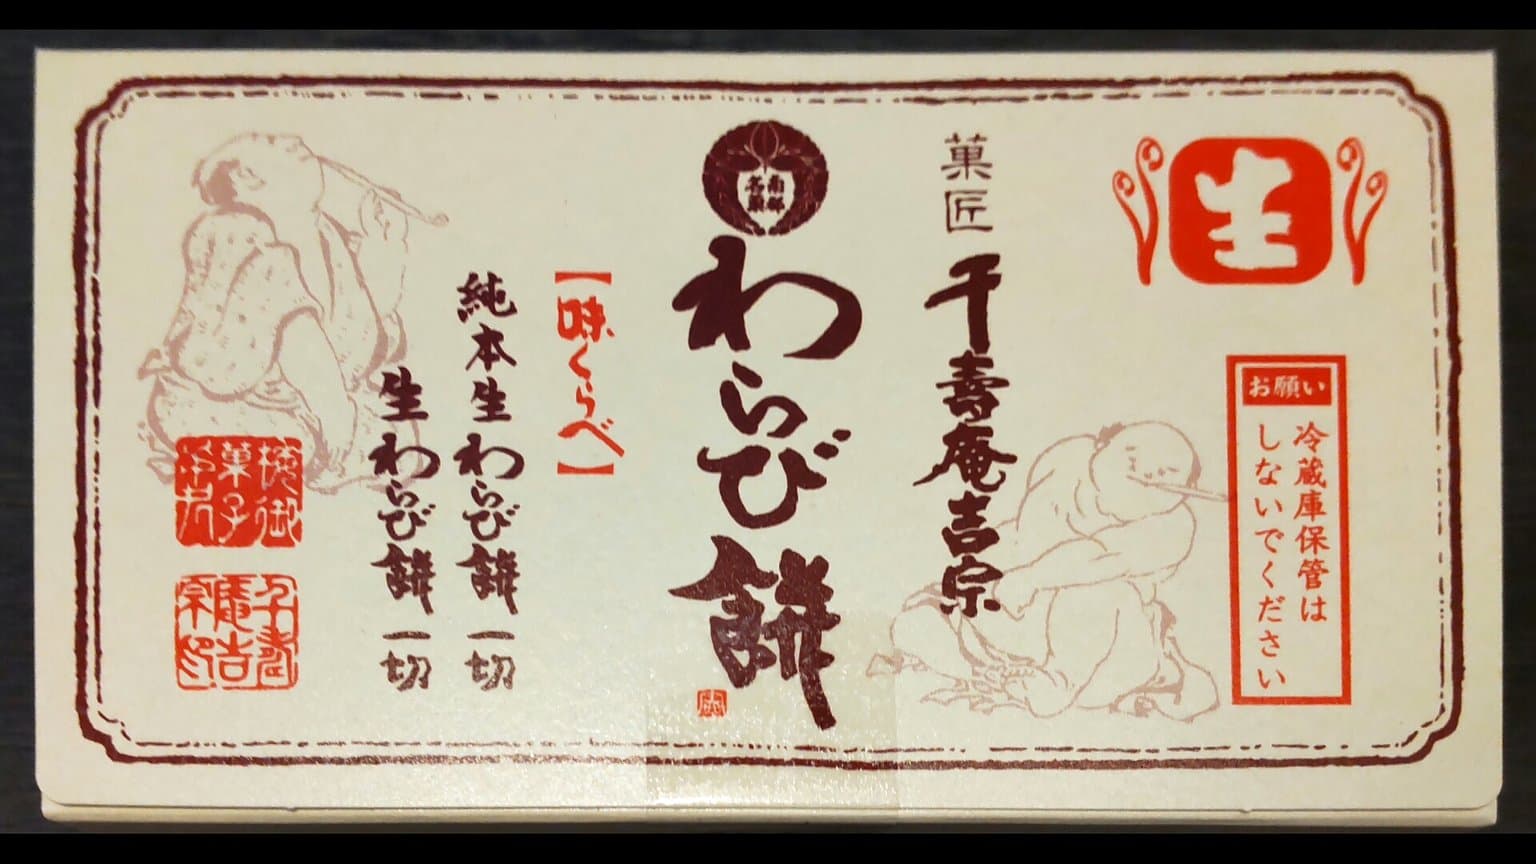 生
お願い
冷蔵庫保管は
しないでください
菓匠
千壽庵吉宗
南都
名菓
わらび餅
【味くらべ】
純本生わらび餅 一切
生わらび餅 一切
御菓子
千壽
庵吉
宗印